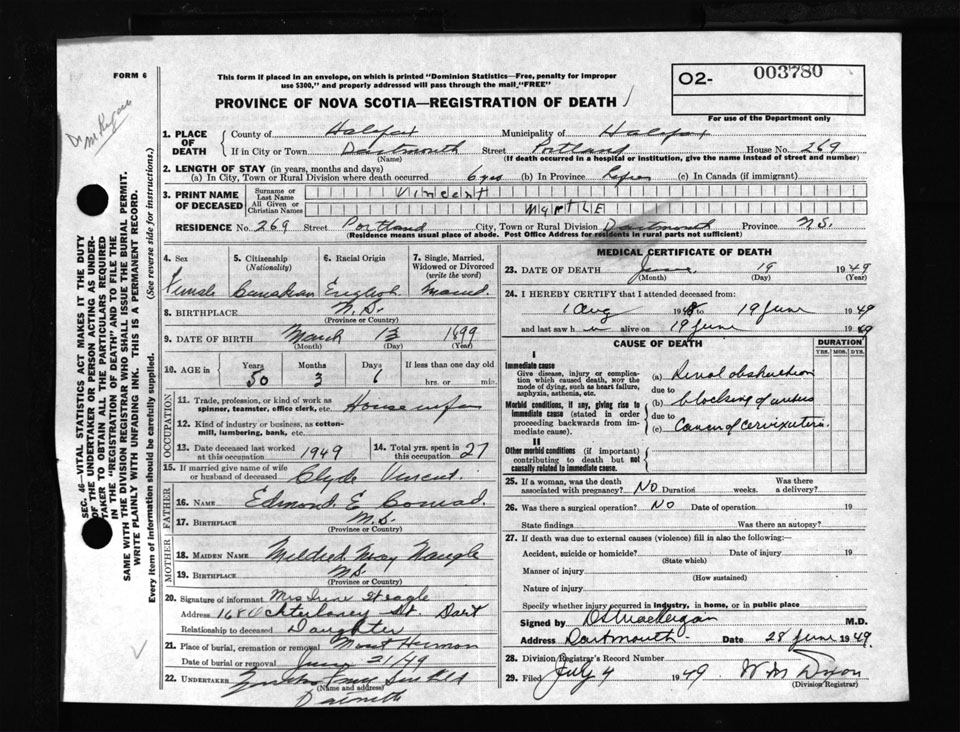 FORM 6
This form if placed in an envelope, on which is printed "Dominion Statistics—Free, penalty for improper
use $300," and properly addressed will pass through the mail, "FREE"
O2- 003780
PROVINCE OF NOVA SCOTIA—REGISTRATION OF DEATH
For use of the Department only
Dr
1. PLACE OF DEATH
County of Halifax Municipality of Halifax
If in City or Town Dartmouth Street Portland House No. 269
(Name) (If death occurred in a hospital or institution, give the name instead of street and number)
2. LENGTH OF STAY (in years, months and days)
(a) In City, Town or Rural Division where death occurred 6 yrs (b) In Province (c) In Canada (if immigrant)
3. PRINT NAME OF DECEASED
Surname or Last Name Vincent
All Given or Christian Names MyrtLE
RESIDENCE No. 269 Street Portland City, Town or Rural Division Dartmouth Province N.S.
(Residence means usual place of abode. Post Office Address for residents in rural parts not sufficient)
4. Sex 5. Citizenship 6. Racial Origin 7. Single, Married,
(Nationality) Widowed or Divorced
(write the word)
Female Canadian English Married
8. BIRTHPLACE N.S.
(Province or Country)
9. DATE OF BIRTH March 13 1899
(Month) (Day) (Year)
10. AGE in Years Months Days If less than one day old
50 3 6 hrs. or min.
OCCUPATION
11. Trade, profession, or kind of work as
spinner, teamster, office clerk, etc. Housewife
12. Kind of industry or business, as cotton-
mill, lumbering, bank, etc.
13. Date deceased last worked at this occupation 1949 14. Total yrs. spent in this occupation 27
15. If married give name of wife
or husband of deceased Clyde Vincent
FATHER
16. NAME Edmond E Conrad
17. BIRTHPLACE N.S.
(Province or Country)
MOTHER
18. MAIDEN NAME Mildred May Naugle
19. BIRTHPLACE N.S.
(Province or Country)
20. Signature of informant Mrs Irene
Address 168 St. Dart
Relationship to deceased Daughter
21. Place of burial, cremation or removal Mount Hermon
Date of burial or removal June 21/49
22. UNDERTAKER
(Name and address)
Dartmouth
MEDICAL CERTIFICATE OF DEATH
23. DATE OF DEATH June 19 1949
(Month) (Day) (Year)
24. I HEREBY CERTIFY that I attended deceased from:
1 Aug 1948 to 19 June 1949
and last saw h alive on 19 June 1949
CAUSE OF DEATH DURATION
YRS. MOS. DYS.
I
Immediate cause
Give disease, injury or compli-
cation which caused death, NOT the
mode of dying, such as heart failure,
asphyxia, asthenia, etc.
(a) Renal obstruction
due to
Morbid conditions, if any, giving rise to
immediate cause (stated in order
proceeding backwards from im-
mediate cause).
(b) blocking of
due to
(c) Cancer of cervix uteri
II
Other morbid conditions (if important)
contributing to death but not
causally related to immediate cause.
25. If a woman, was the death Was there
associated with pregnancy? NO Duration weeks. a delivery?
26. Was there a surgical operation? NO Date of operation 19
State findings Was there an autopsy?
27. If death was due to external causes (violence) fill in also the following:—
Accident, suicide or homicide? Date of injury 19
(State which)
Manner of injury
(How sustained)
Nature of injury
Specify whether injury occurred in industry, in home, or in public place
Signed by M.D.
Address Dartmouth Date 28 June 1949
28. Division Registrar's Record Number
29. Filed July 4 1949 W M Dixon
(Division Registrar)
SEC. 46—VITAL STATISTICS ACT MAKES IT THE DUTY
OF THE UNDERTAKER OR PERSON ACTING AS UNDER-
TAKER TO OBTAIN ALL THE PARTICULARS REQUIRED
IN THE "REGISTRATION OF DEATH" AND TO FILE THE
SAME WITH THE DIVISION REGISTRAR WHO SHALL ISSUE THE BURIAL PERMIT.
WRITE PLAINLY WITH UNFADING INK. THIS IS A PERMANENT RECORD.
Every item of information should be carefully supplied. (See reverse side for instructions.)